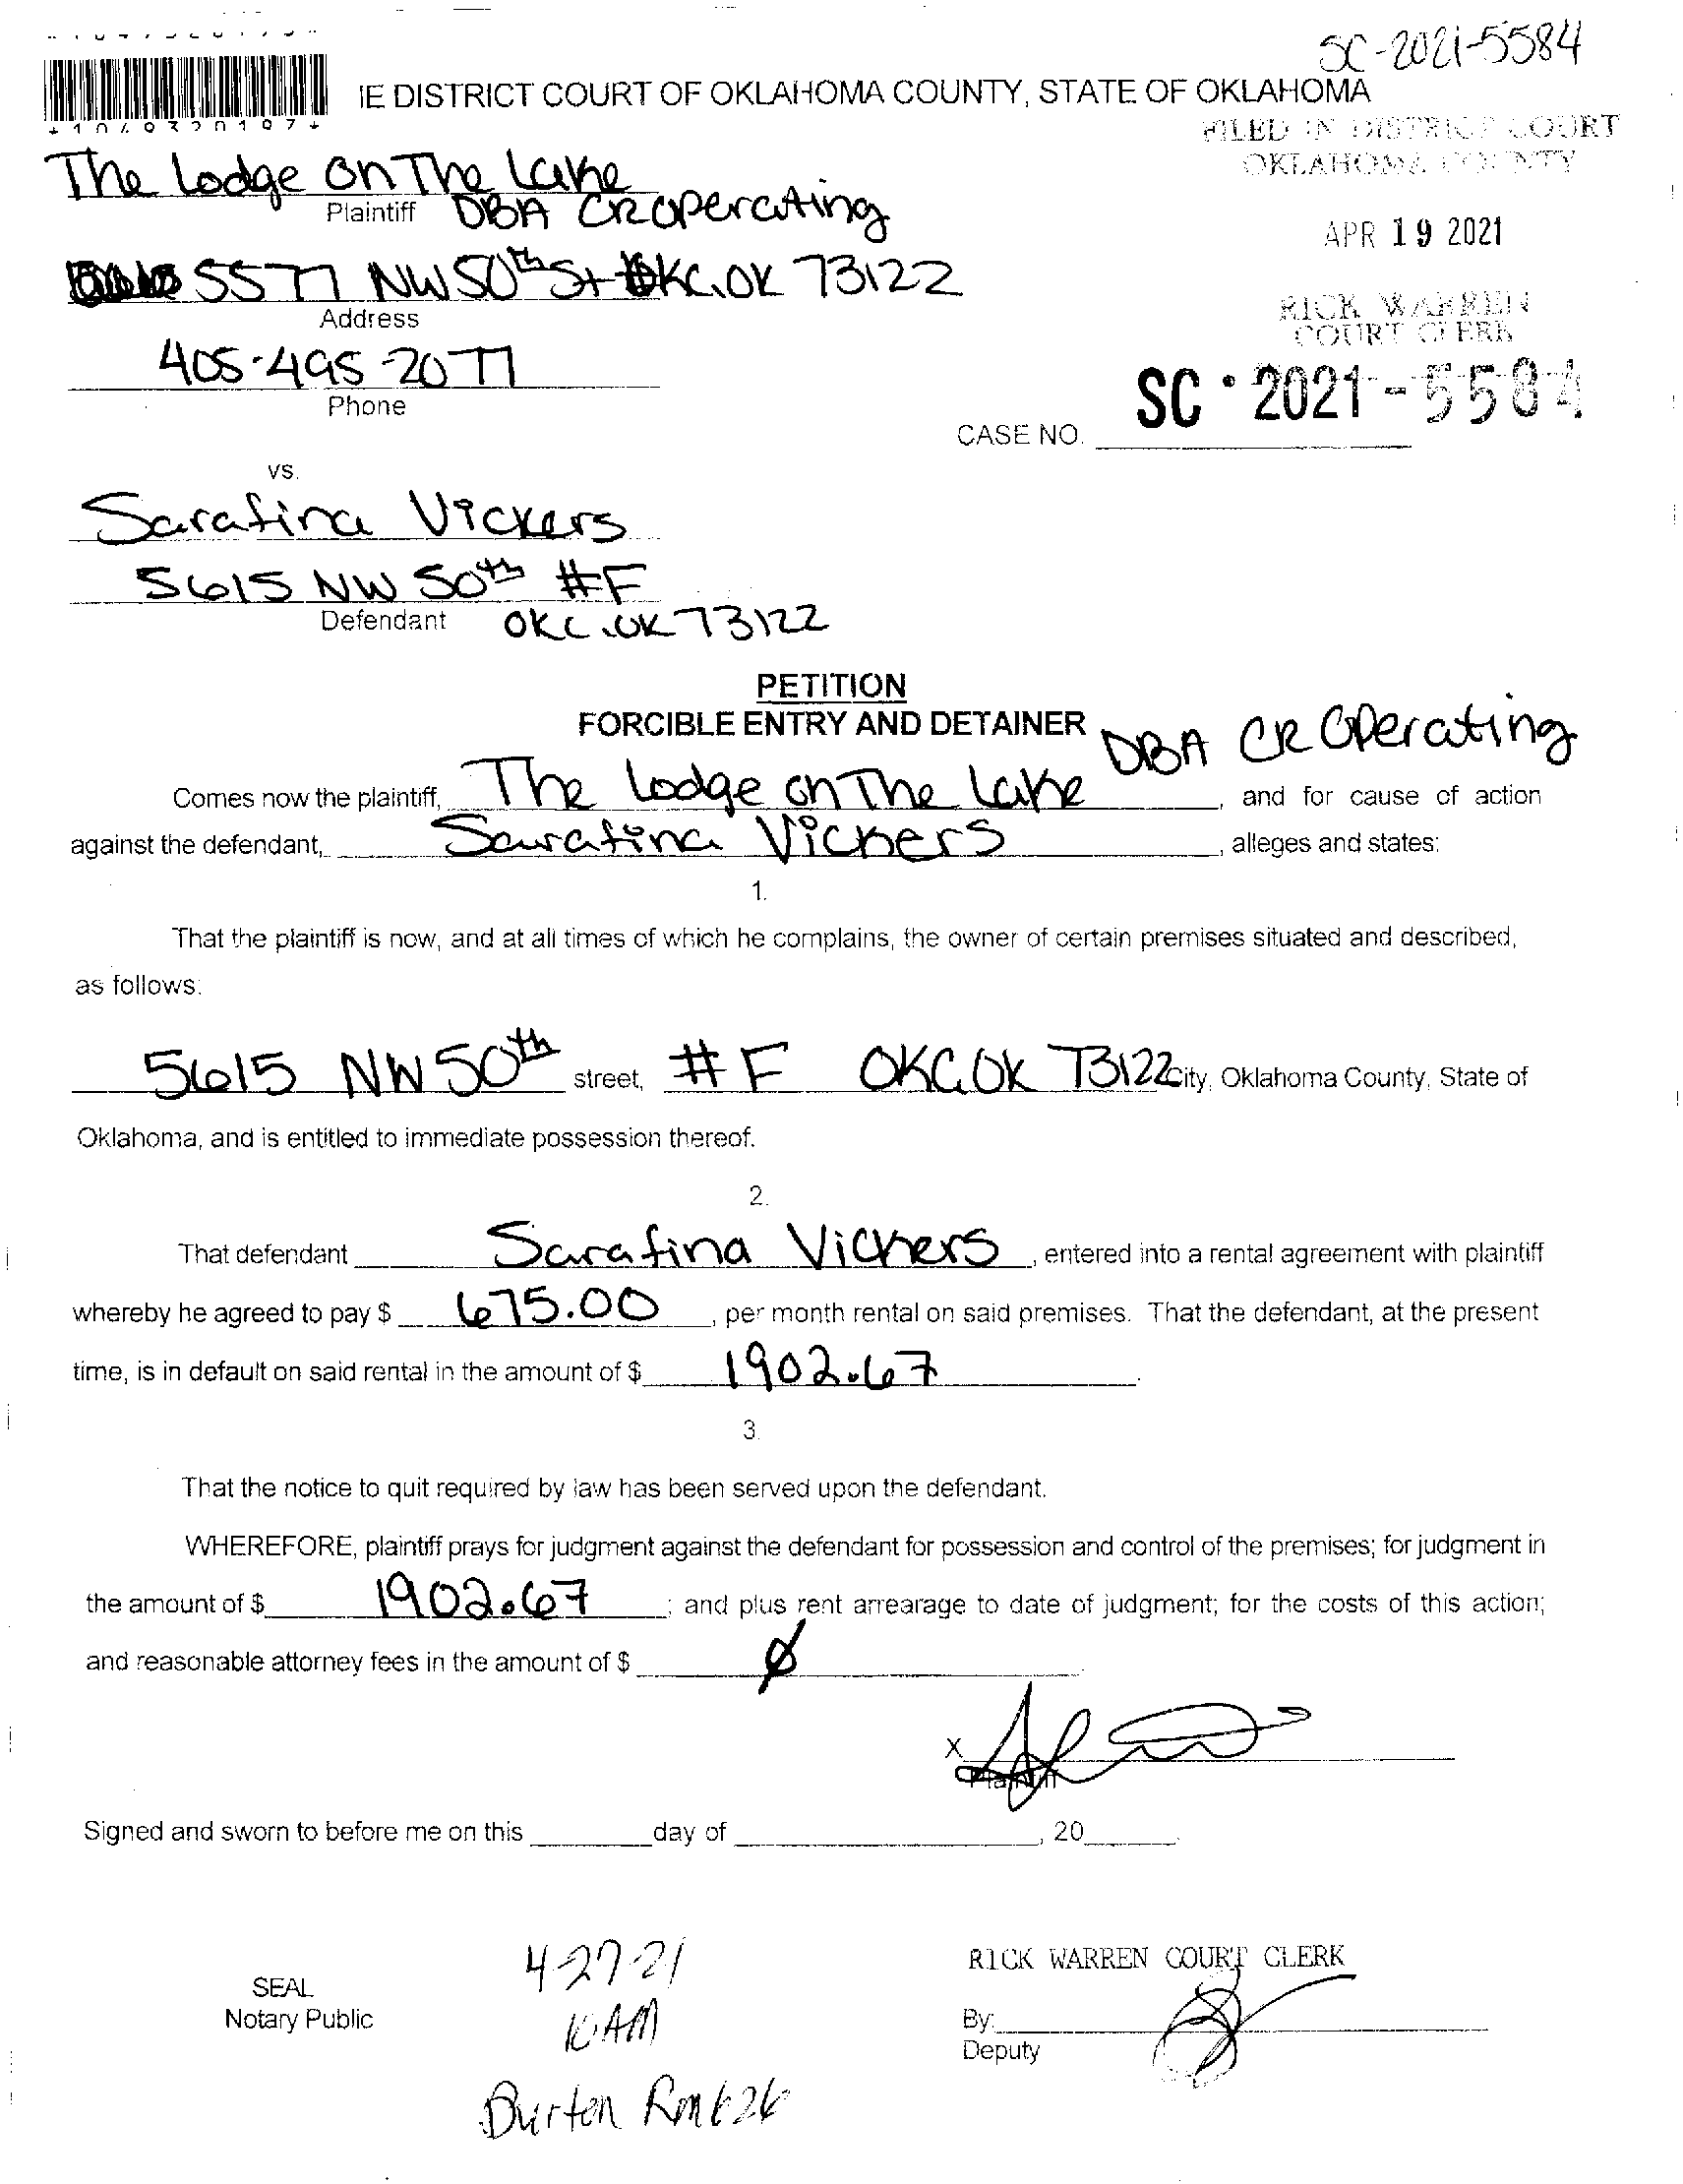 SC-2021-5584
IE DISTRICT COURT OF OKLAHOMA COUNTY, STATE OF OKLAHOMA
FILED IN DISTRICT COURT
OKLAHOMA COUNTY
The Lodge On The Lake
Plaintiff DBA CR Operating
APR 19 2021
5577 NW 50th St OKC, OK 73122
Address
RICK WARREN
COURT CLERK
405-495-2077
Phone
SC-2021-5584
CASE NO.
vs.
Sarafina Vickers
5615 NW 50th #F
Defendant OKC, OK 73122
PETITION
FORCIBLE ENTRY AND DETAINER
DBA CR Operating
Comes now the plaintiff, The Lodge On The Lake, and for cause of action
against the defendant, Sarafina Vickers, alleges and states:
1.
That the plaintiff is now, and at all times of which he complains, the owner of certain premises situated and described,
as follows:
5615 NW 50th street, #F OKC, OK 73122 City, Oklahoma County, State of
Oklahoma, and is entitled to immediate possession thereof.
2.
That defendant Sarafina Vickers, entered into a rental agreement with plaintiff
whereby he agreed to pay $ 675.00, per month rental on said premises. That the defendant, at the present
time, is in default on said rental in the amount of $ 1902.67.
3.
That the notice to quit required by law has been served upon the defendant.
WHEREFORE, plaintiff prays for judgment against the defendant for possession and control of the premises; for judgment in
the amount of $ 1902.67; and plus rent arrearage to date of judgment; for the costs of this action;
and reasonable attorney fees in the amount of $ Ø.
X
Plaintiff
Signed and sworn to before me on this ____ day of ____, 20____.
4-27-21
RICK WARREN COURT CLERK
SEAL
Notary Public
10 AM
By:
Deputy
Burton Rm 626